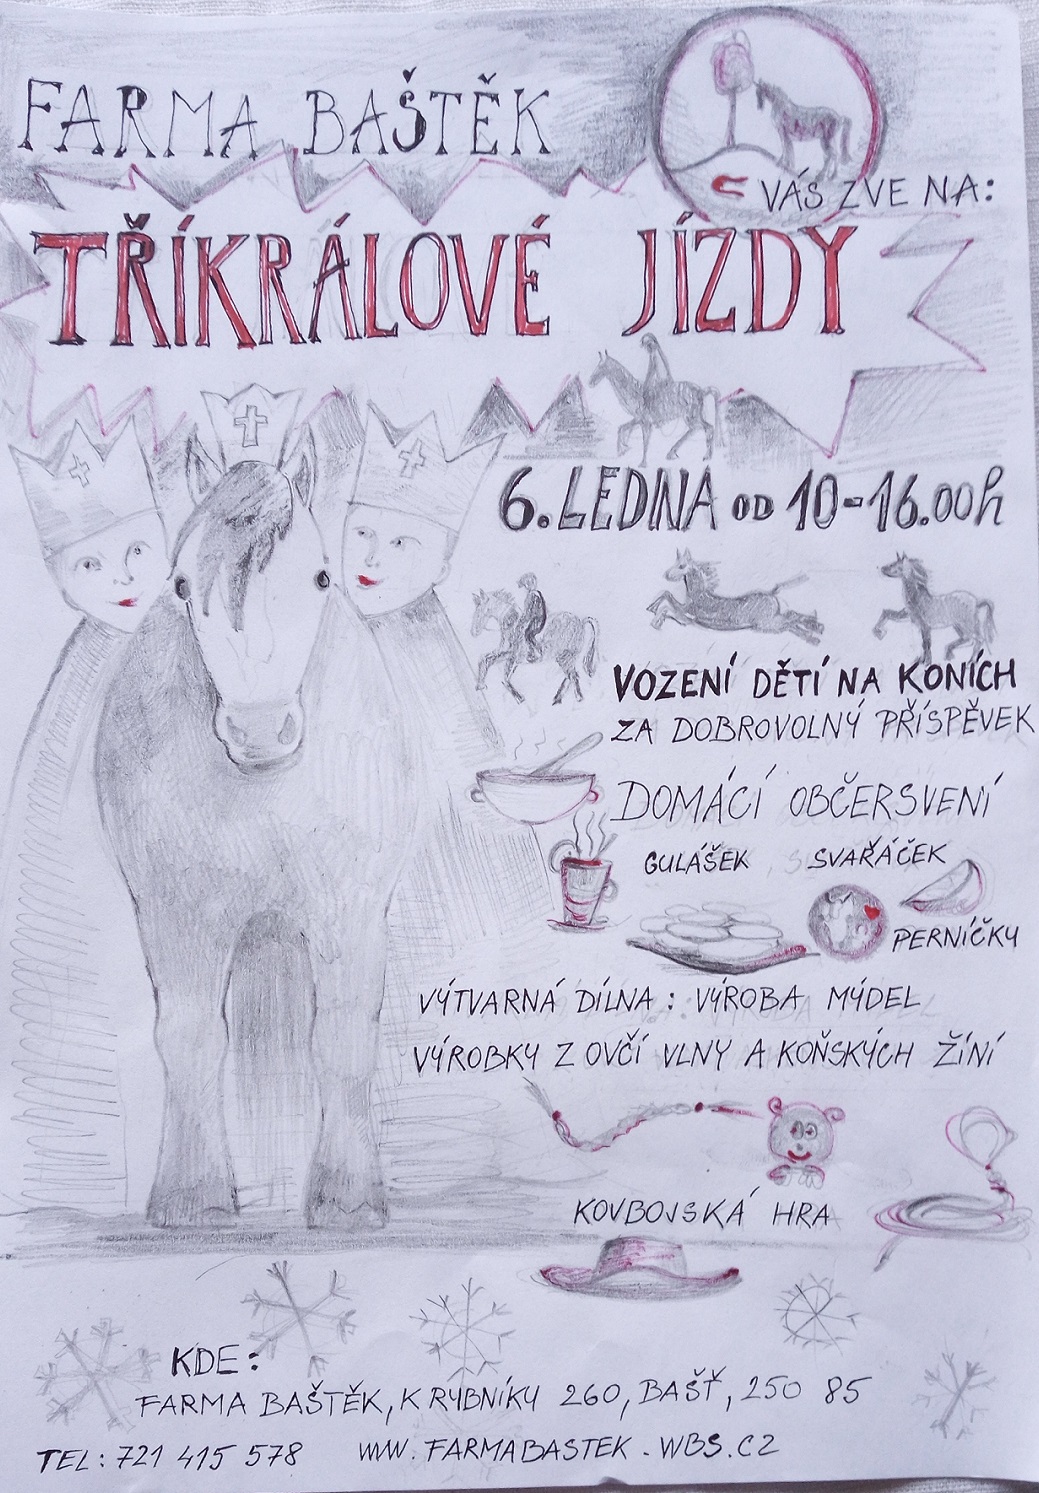 FARMA BAŠTĚK
VÁS ZVE NA:
TŘÍKRÁLOVÉ JÍZDY
6. LEDNA OD 10-16.00h
VOZENÍ DĚTÍ NA KONÍCH
ZA DOBROVOLNÝ PŘÍSPĚVEK
DOMÁCÍ OBČERSVENÍ
GULÁŠEK SVAŘÁČEK
PERNÍČKY
VÝTVARNÁ DÍLNA: VÝROBA MÝDEL
VÝROBKY Z OVČÍ VLNY A KOŇSKÝCH ŽÍNÍ
KOVBOJSKÁ HRA
KDE:
FARMA BAŠTĚK, K RYBNÍKY 260, BAŠŤ, 250 85
TEL: 721 415 578 WWW.FARMABASTEK.WBS.CZ